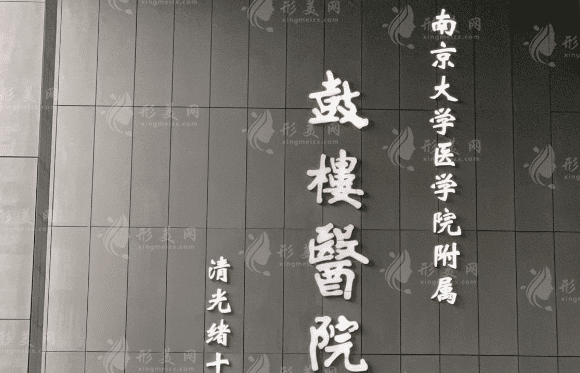 南京大学医学院附属
鼓樓醫院
清光绪十
形美网
xingmeizx.com